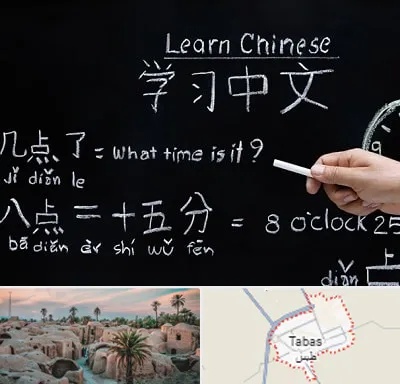 Learn Chinese
学习中文
几点了 = What time is it?
jǐ diǎn le
八点二十五分 = 8 o'clock 25
bā diǎn èr shí wǔ fēn
diǎn 上
9
Tabas
طبس